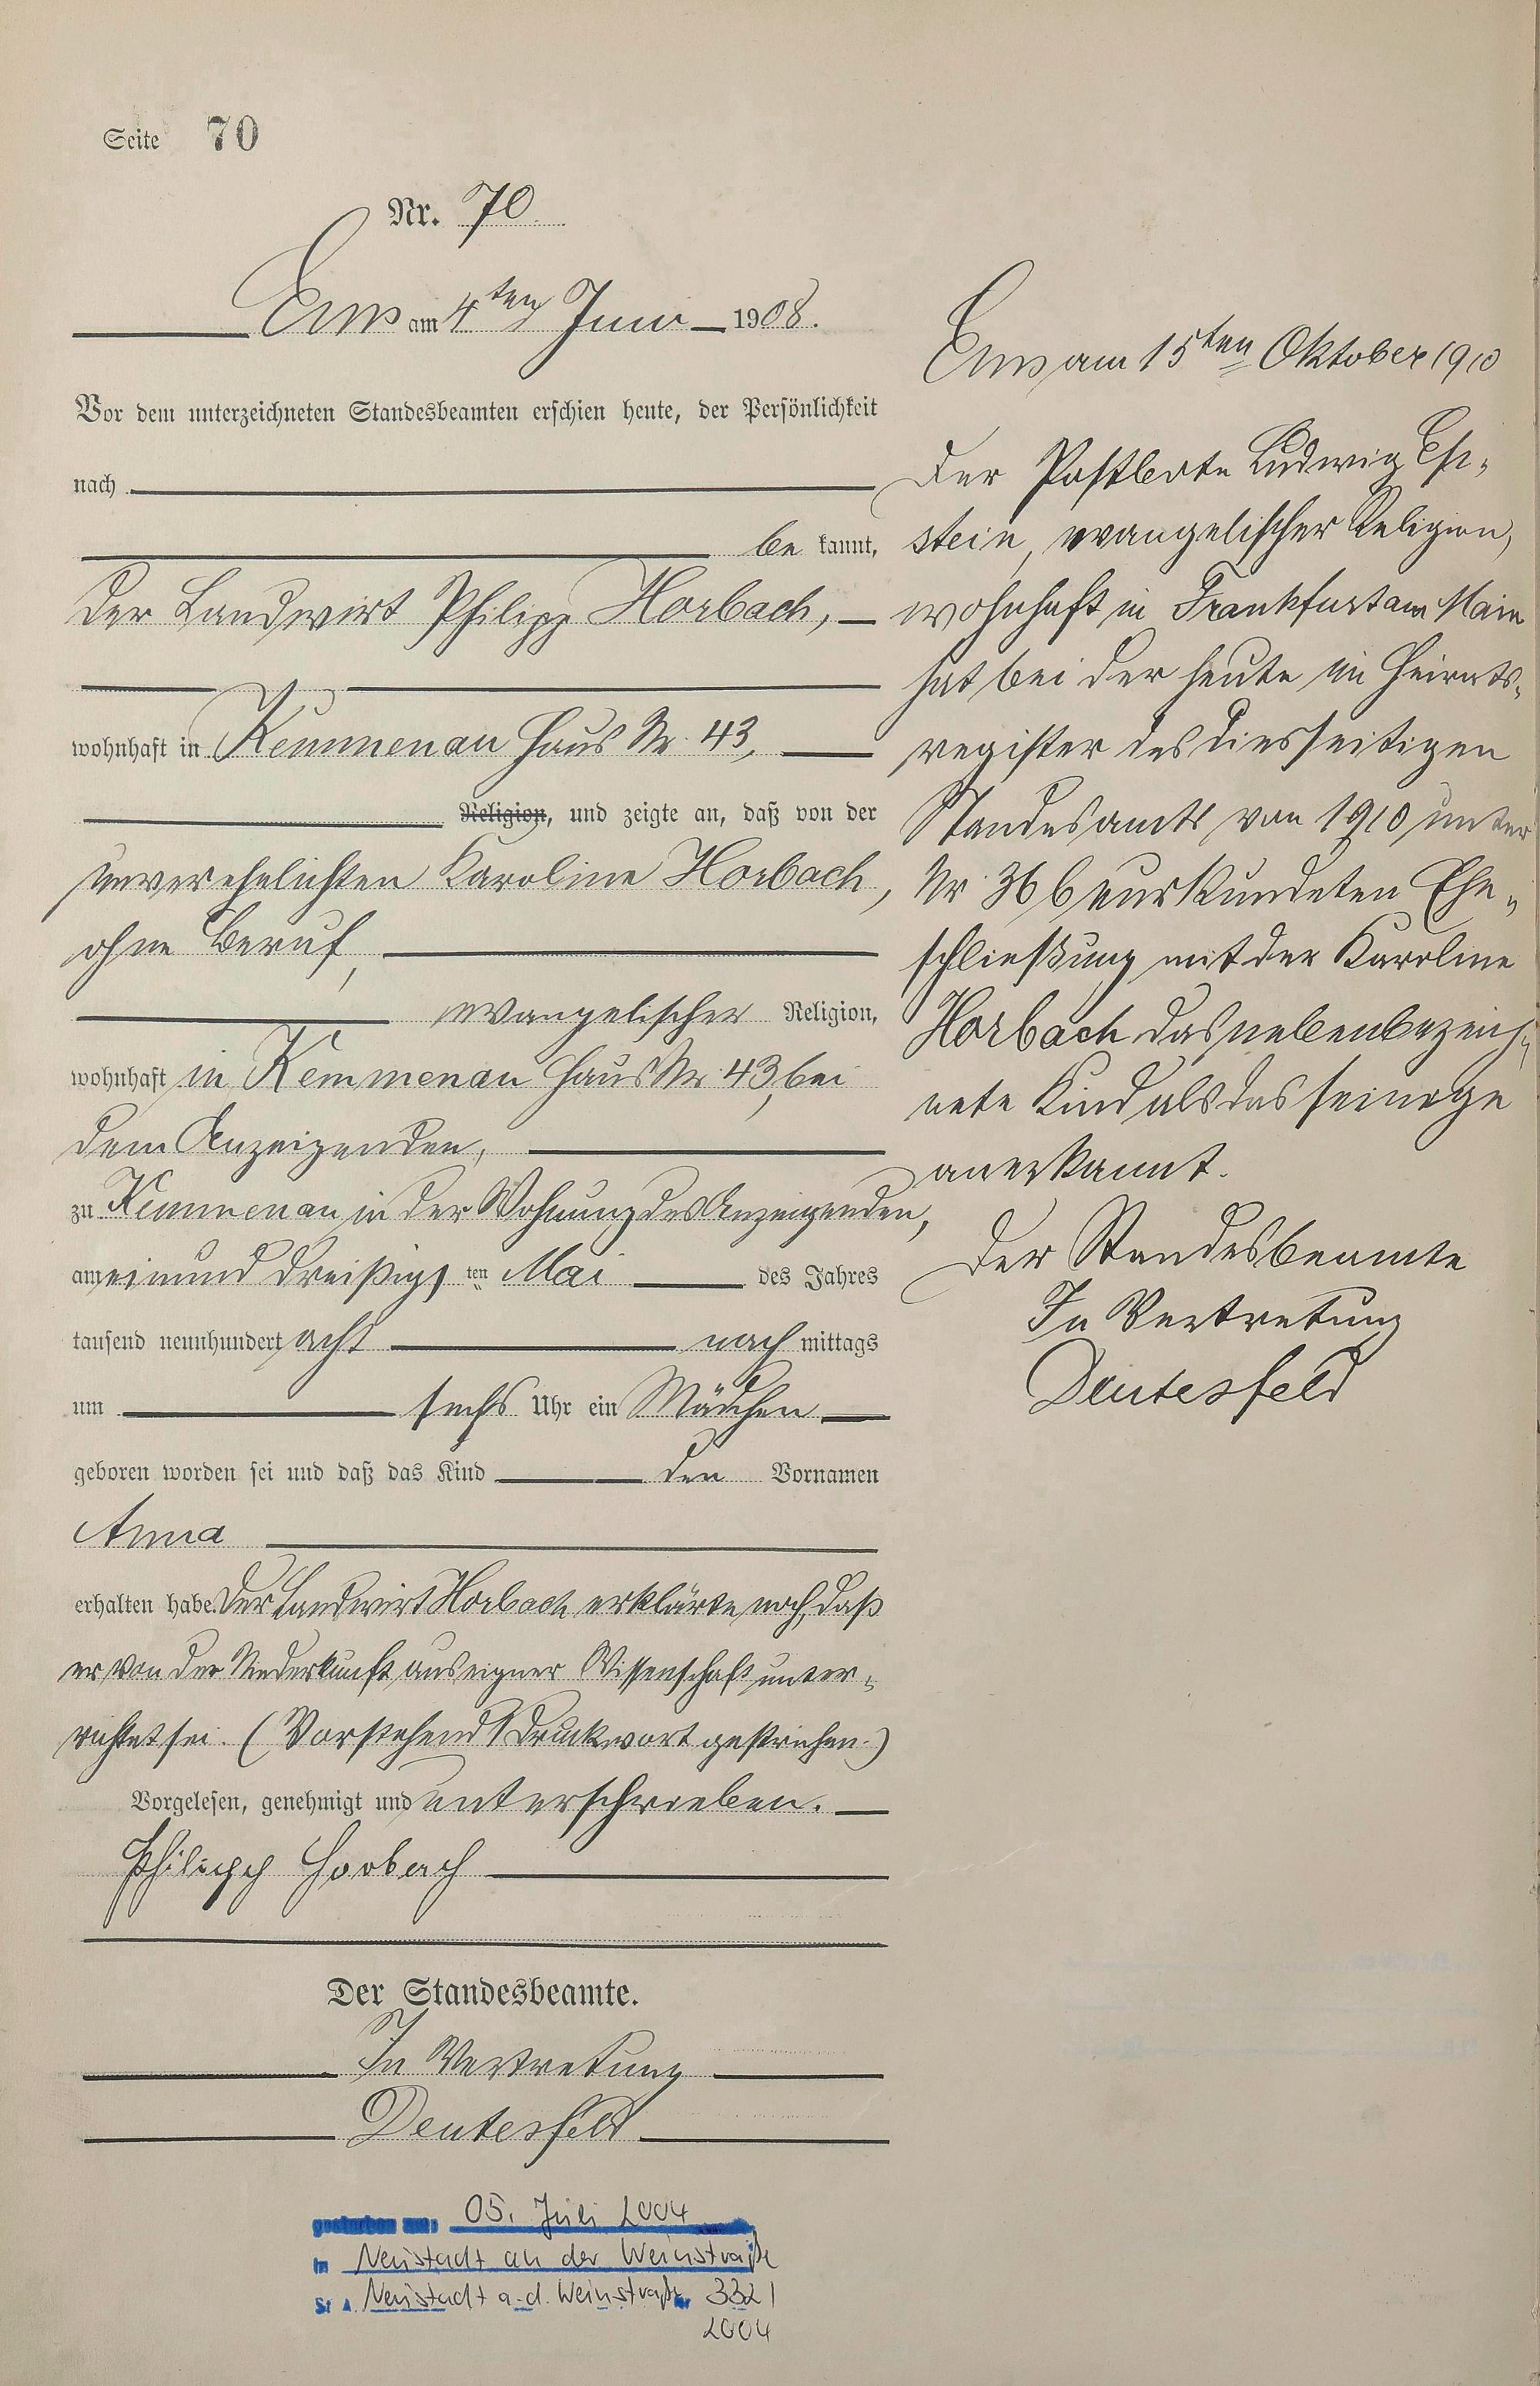 Seite 70
Nr. 70.
Ems am 4ten Juni 1908.
Vor dem unterzeichneten Standesbeamten erschien heute, der Persönlichkeit
nach
be kannt,
der Landwirt Philipp Horbach,
wohnhaft in Kemmenau Haus Nr. 43,
Religion, und zeigte an, daß von der
unverehelichten Karoline Horbach,
ohne Beruf,
evangelischer Religion,
wohnhaft in Kemmenau Haus Nr. 43, bei
dem Anzeigenden,
zu Kemmenau in der Wohnung des Anzeigenden,
am einund dreißigsten Mai des Jahres
tausend neunhundert acht nach mittags
um sechs Uhr ein Mädchen
geboren worden sei und daß das Kind den Vornamen
Anna
erhalten habe. Der Landwirt Horbach erklärte noch, daß
er von der Niederkunft aus eigner Wissenschaft unter-
richtet sei. (Vorstehend 1 Druckwort gestrichen.)
Vorgelesen, genehmigt und unterschrieben.
Philipp Horbach
Der Standesbeamte.
In Vertretung
Deutesfeld
gestorben am: 05. Juli 2004
in Neustadt an der Weinstraße
St. A. Neustadt a.d. Weinstraße Nr. 332/
2004
Ems am 15ten Oktober 1910
Der Postbote Ludwig Ep-
stein, evangelischer Religion,
wohnhaft in Frankfurt am Main
hat bei der heute im Heirats-
register des diesseitigen
Standesamts von 1910 unter
Nr 36 beurkundeten Ehe-
schließung mit der Karoline
Horbach das nebenbezeich-
nete Kind als das seinige
anerkannt.
Der Standesbeamte
In Vertretung
Deutesfeld